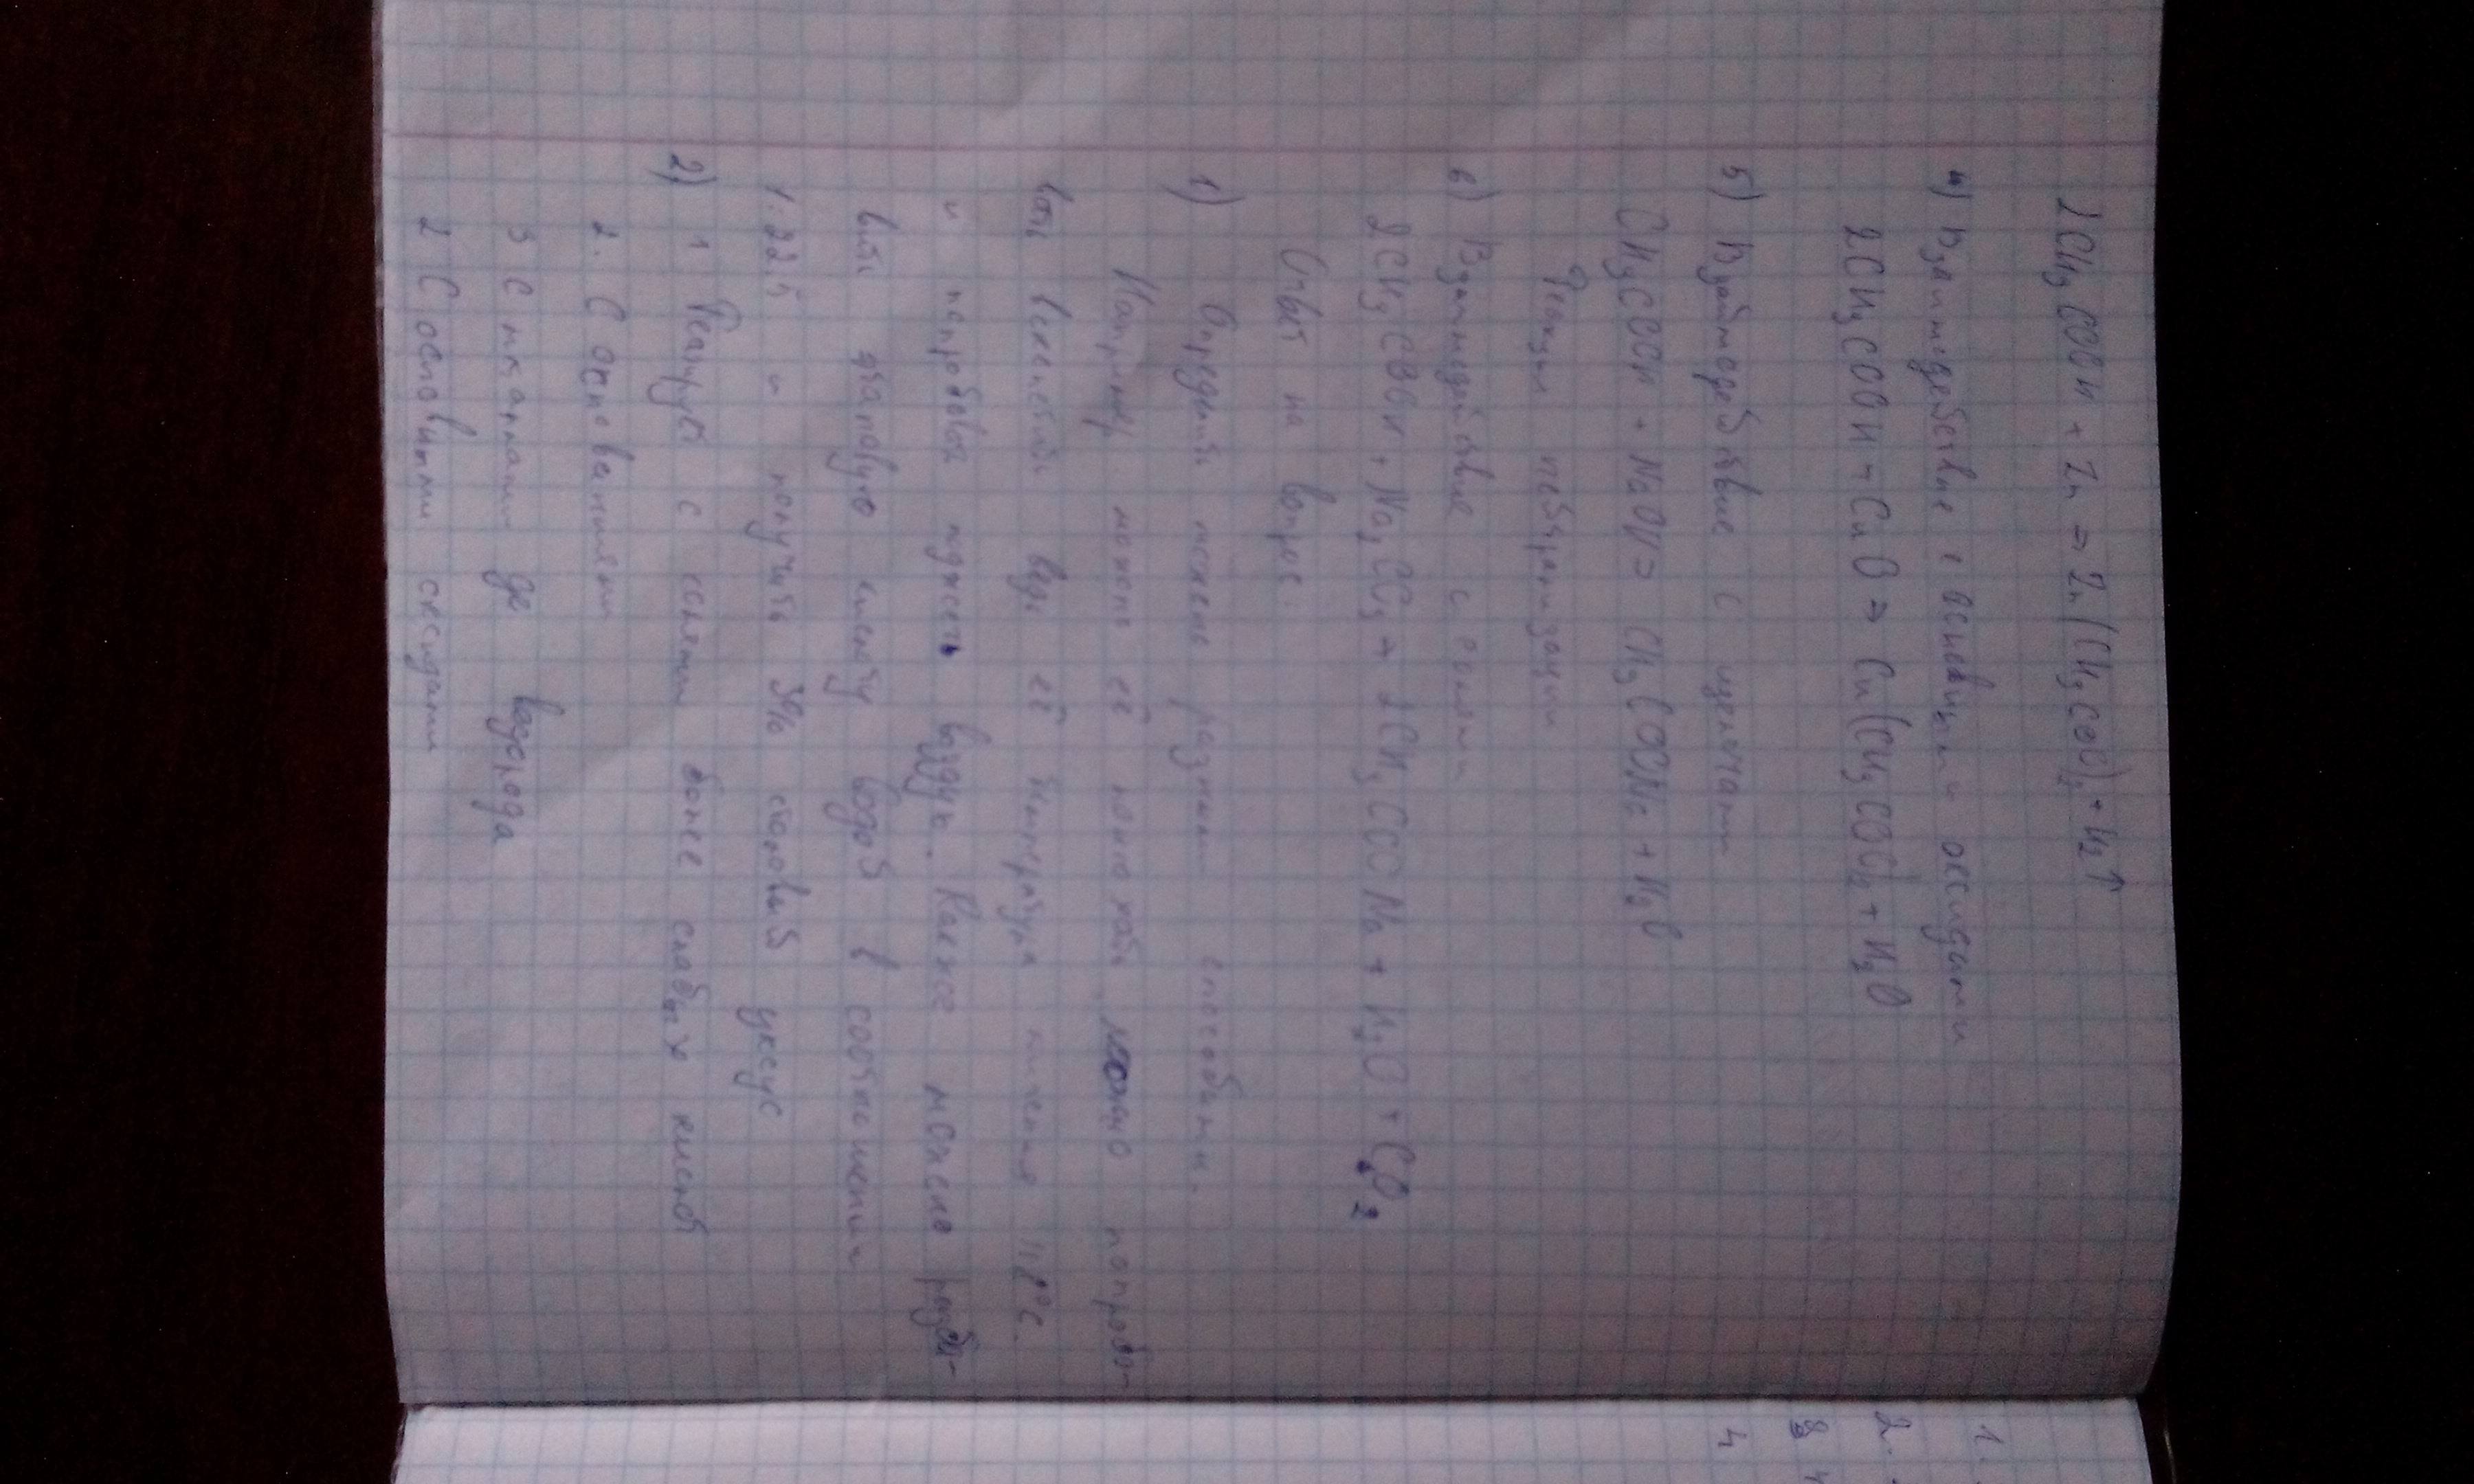 2CH₃COOH + Zn ⇒ Zn(CH₃COO)₂ + H₂↑
4) Взаимодействие с основными оксидами
2CH₃COOH + CuO ⇒ Cu(CH₃COO)₂ + H₂O
5) Взаймодействие с щелочами
CH₃COOH + NaOH ⇒ CH₃COONa + H₂O
Реакция нейтрализации
6) Взаимодействие с солями
2CH₃COOH + Na₂CO₃ → 2CH₃COONa + H₂O + CO₂
Ответ на вопрос.
1) Определить можно разными способами.
Например можно её понюхать можно попробо-
вать вскипятить ведь её температура кипения 118°C.
и попробовать поджечь воздух. Также можно разба-
вить данную кислоту водой в соотношении
1:22.5 и получить 3% столовый уксус
2) 1 Реагирует с солями более слабых кислот
2. С основаниями
3 С металлами до водорода
2 С основными оксидами
1.
2.
3
4